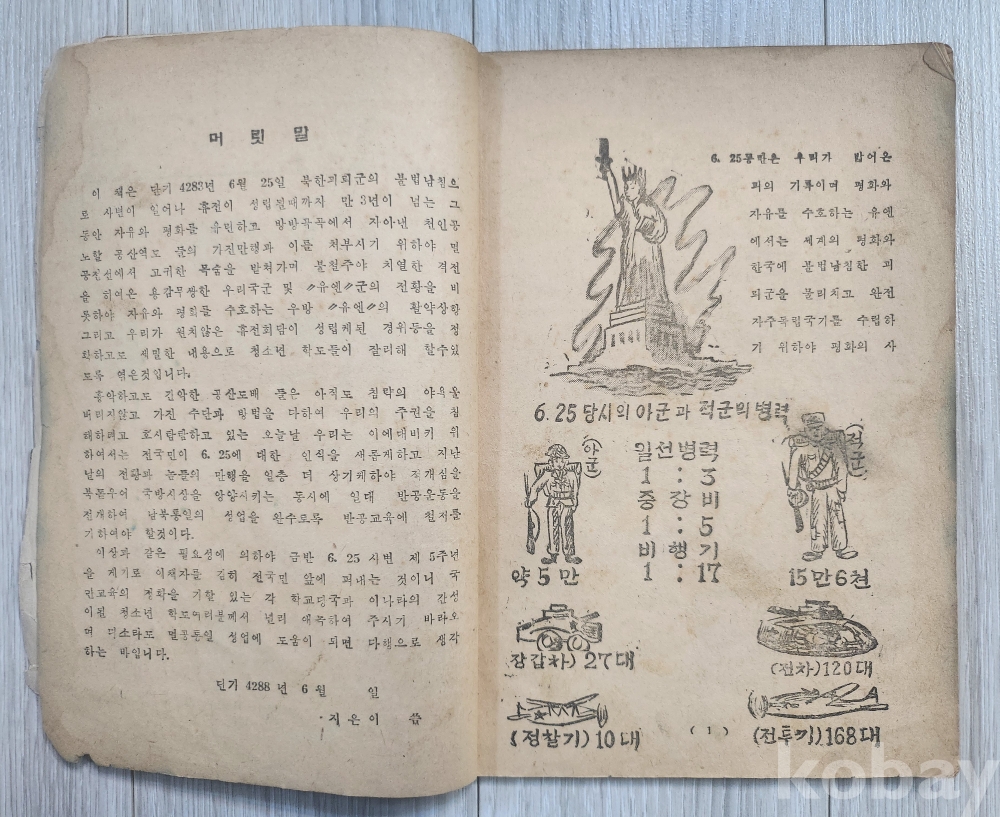 머 릿 말
이 책은 단기 4283년 6월 25일 북한괴뢰군의 불법남침으
로 사변이 일어나 휴전이 성립될때까지 만 3년이 넘는 그
동안 자유와 평화를 유린하고 방방곡곡에서 자아낸 천인공
노할 공산역도 들의 가진만행과 이를 처부시기 위하야 멸
공전선에서 고귀한 목숨을 받쳐가며 불철주야 치열한 격전
을 하여온 용감무쌍한 우리국군 및 〃유엔〃군의 전황을 비
롯하야 자유와 평화를 수호하는 우방 〃유엔〃의 활약상황
그리고 우리가 원치않은 휴전회담이 성립케된 경위등을 정
확하고도 세밀한 내용으로 청소년 학도들이 잘리해 할수있
도록 엮은것입니다.
흉악하고도 간악한 공산도배 들은 아직도 침략의 야욕을
버리지않고 가진 수단과 방법을 다하여 우리의 주권을 침
해하려고 호시탐탐하고 있는 오늘날 우리는 이에대비키 위
하여서는 전국민이 6.25에 대한 인식을 새롭게하고 지난
날의 전황과 놈들의 만행을 일층 더 상기케하야 적개심을
북돋우어 국방사상을 앙양시키는 동시에 일대 반공운동을
전개하여 남북통일의 성업을 완수토록 반공교육에 철저를
기하여야 할것이다.
이상과 같은 필요성에 의하야 금반 6.25 사변 제 5주년
을 계기로 이책자를 감히 전국민 앞에 펴내는 것이니 국
민교육의 정화을 기할 있는 각 학교당국과 이나라의 간성
이된 청소년 학도여러분께서 널리 애독하여 주시기 바라오
며 다소라도 멸공통일 성업에 도움이 되면 다행으로 생각
하는 바입니다.
단기 4288년 6월 일
지은이 씀
6. 25동란은 우리가 밥어온
피의 기록이며 평화와
자유를 수호하는 유엔
에서는 세계의 평화와
한국에 불법남침한 괴
뢰군을 물리치고 완전
자주독립국기를 수립하
기 위하야 평화의 사
6.25 당시의 아군과 적군의 병력
(아군)
일선병력
(적군)
1 : 3
중 장 비
1 : 5
비 행 기
1 : 17
약 5 만
15 만 6 천
장갑차) 27 대
(전차) 120 대
(정찰기) 10 대
( 1 )
(전투기) 168 대
kobay